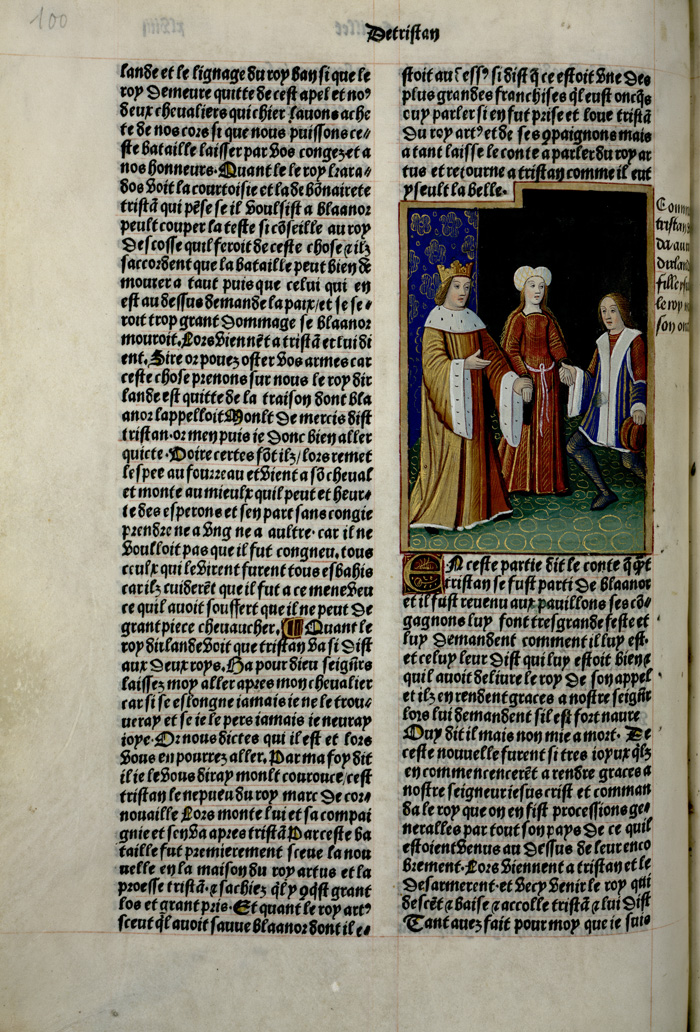 100
De tristan
lande et le lignage du roy ban si que le
roy demeure quitte de cest apel et noꝰ
deux cheualiers qui chier lauons ache
te de nos cors si que nous puissons ce⸗
ste bataille laisser par vos congez et a
nos honneurs. Quant le le roy kara⸗
dos voit la courtoisie et la debōnairete
tristā qui pēse se il voulsist a blaanor
peult couper la teste si cōseille au roy
descosse quil feroit de ceste chose ⁊ ilz
saccordent que la bataille peut bien de
mourer a taut puis que celui qui en
est au dessus demande la paix/et se se⸗
roit trop grant dommage se blaanor
mouroit. Lors viennēt a tristā et lui di
ent. Sire or pouez oster vos armes car
ceste chose prenons sur nous le roy dir
lande est quitte de la traison dont bla
anor lappelloit Monlt de mercis dist
tristan. or men puis ie donc bien aller
quicte. Voire certes fōt ilz/ lors remet
lespee au fourreau et vient a sō cheual
et monte au mieulx quil peut et heur⸗
te des esperons et sen part sans congie
prendre ne a vng ne a aultre. car il ne
voulloit pas que il fut congneu. tous
ceulx qui le virent furent tous esbahis
car ilz cuiderēt que il fut a ce mene veu
ce quil auoit souffert que il ne peut de
grant piece cheuaucher. Quant le
roy dirlande voit que tristan va si dist
aux deux roys. Ha pour dieu seignrs
laissez moy aller apres mon cheualier
car si se eslongne iamais ie ne le trou⸗
ueray et se ie le pers iamais ie neuray
ioye. Or nous dictes qui il est et lors
vous en pourrez aller. Par ma foy dit
il ie le vous diray monlt courouce/cest
tristan le nepueu du roy marc de cor⸗
nouaille Lors monte lui et sa compai
gnie et sen va apres tristā Par ceste ba
taille fut premierement sceue la nou
uelle en la maison du roy artus et la
proesse tristā. ⁊ sachiez ql y ꝯqst grant
los et grant pris. Et quant le roy artꝰ
sceut ql auoit sauue blaanor dont il e⸗
stoit au dessꝰ si dist q̄ ce estoit vne des
plus grandes franchises ql eust oncqs
ouy parler si en fut prise et loue tristā
du roy artꝰ et de ses ꝯpaignons mais
a tant laisse le conte a parler du roy ar
tus et retourne a tristan comme il eut
yseult la belle.
tristan
dirland
fille
le roy
son on
En ceste partie dit le conte q̄ q̄nt
tristan se fust parti de blaanor
et il fust reuenu aux pauillons ses cō⸗
gagnons luy font tresgrande feste et
luy demandent comment il luy est.
et celuy leur dist qui luy estoit bien ⁊
quil auoit deliure le roy de son appel
et ilz en rendent graces a nostre seignr
lors lui demandent sil est fort naure
Ouy dit il mais non mie a mort. De
ceste nouuelle furent si tres ioyux qlz
en commencencerēt a rendre graces a
nostre seigneur iesus crist et comman
da le roy que on en fist processions ge⸗
neralles par tout son pays de ce quil
estoient venus au dessus de leur enco
brement. Lors viennent a tristan et le
desarmerent. et vecy venir le roy qui
descēt ⁊ baise ⁊ accolle tristā ⁊ lui dist
Tant auez fait pour moy que ie suis